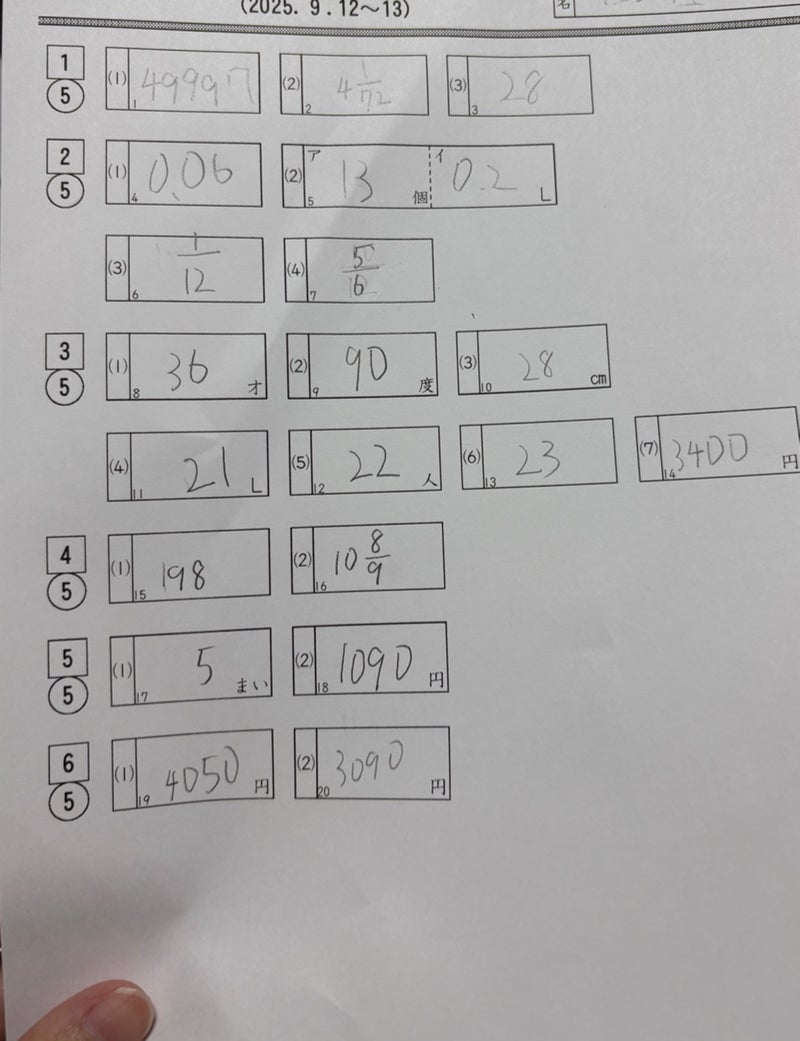 (2025. 9 . 12～13)
名
1 (1) 1 49997 (2) 2 4 1/72 (3) 3 28
5
2 (1) 4 0.06 (2) 5 ア 13 個 イ 0.2 L
5
(3) 6 1/12 (4) 7 5/16
3 (1) 8 36 才 (2) 9 90 度 (3) 10 28 cm
5
(4) 11 21 L (5) 12 22 人 (6) 13 23 (7) 14 3400 円
4 (1) 15 198 (2) 16 10 8/9
5
5 (1) 17 5 まい (2) 18 1090 円
5
6 (1) 19 4050 円 (2) 20 3090 円
5